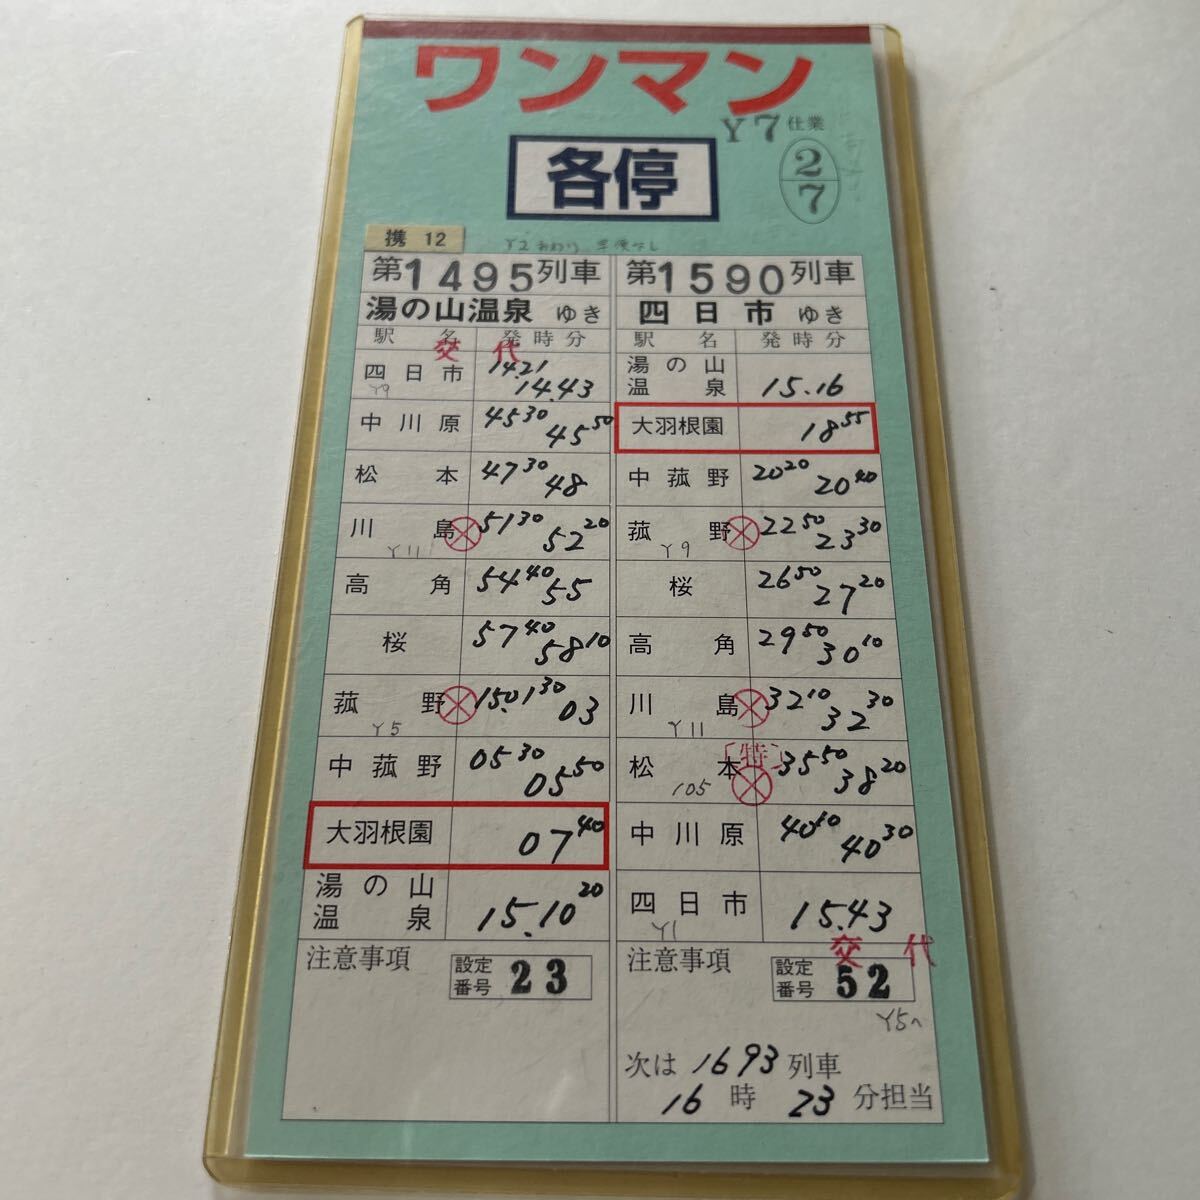 ワンマン
Y7仕業
各停
2
7
携 12
Y2おわり
第1495列車
湯の山温泉 ゆき
駅名 発時分
交代
四日市 14.21 14.43
Y9
中川原 45 30 45 50
松本 47 30 48
川島 51 30 52 20
Y11
高角 54 40 55
桜 57 40 58 10
菰野 15.01 30 03
Y5
中菰野 05 30 05 50
大羽根園 07 40
湯の山温泉 15.10 20
注意事項
設定番号 23
第1590列車
四日市 ゆき
駅名 発時分
湯の山温泉 15.16
大羽根園 18 55
中菰野 20 20 20 40
菰野 22 50 23 30
Y9
桜 26 50 27 20
高角 29 50 30 10
川島 32 10 32 30
Y11
〔特〕
松本 35 50 38 20
105
中川原 40 10 40 30
四日市 15.43
Y1
交代
注意事項
設定番号 52
Y5へ
次は1693列車
16時23分担当